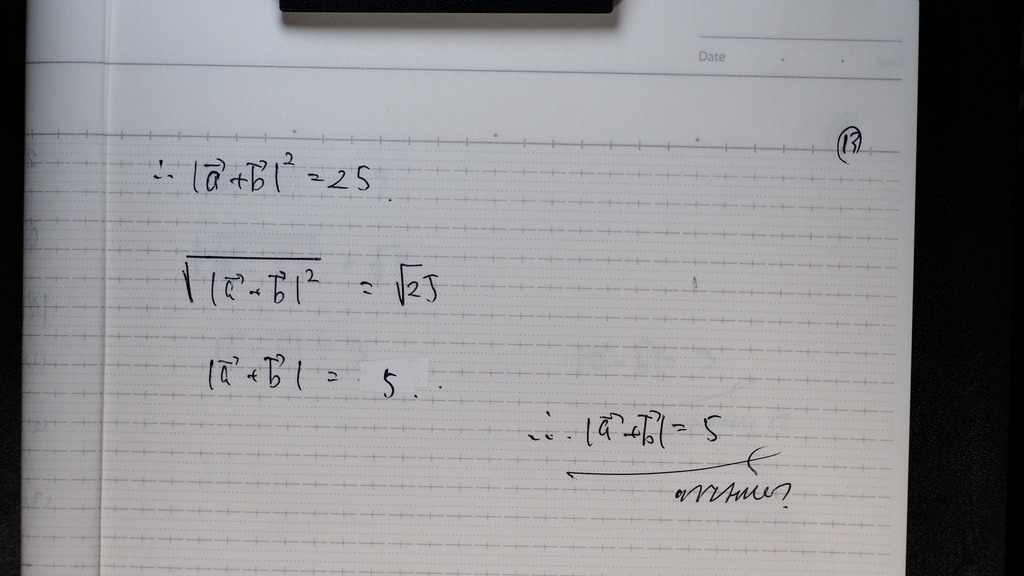 Date
(13)
∴ |a⃗+b⃗|² = 25.
√|a⃗+b⃗|² = √25
|a⃗+b⃗| = 5.
∴ |a⃗+b⃗| = 5
answer